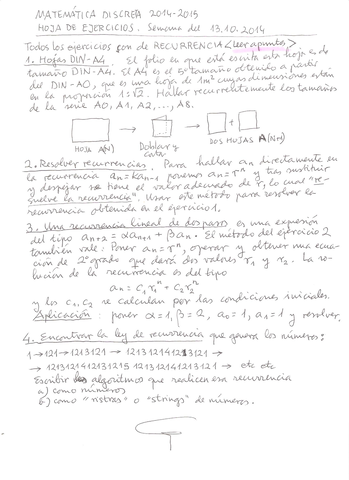 MATEMÁTICA DISCRETA 2014-2015
HOJA DE EJERCICIOS. Semana del 13.10.2014
Todos los ejercicios son de RECURRENCIA <Leer apuntes>
1. Hojas DIN-A4. El folio en que está escrita esta hoja es de
tamaño DIN-A4. El A4 es el 5º tamaño obtenido a partir
del DIN-A0, que es una hoja de 1m² cuyas dimensiones están
en la proporción 1:√2. Hallar recurrentemente los tamaños
de la serie A0, A1, A2, ..., A8.
HOJA A(N) Doblar y cortar DOS HOJAS A(N+1)
2. Resolver recurrencias. Para hallar an directamente en
la recurrencia an = k an-1 ponemos an = r^n y tras sustituir
y despejar se tiene el valor adecuado de r, lo cual "re-
suelve la recurrencia". Usar este método para resolver la
recurrencia obtenida en el ejercicio 1.
3. Una recurrencia lineal de dos pasos es una expresión
del tipo an+2 = αan+1 + βan. El método del ejercicio 2
también vale: Poner an = r^n, operar y obtener una ecua-
ción de 2º grado que dará dos valores r1 y r2. La so-
lución de la recurrencia es del tipo
an = c1 r1^n + c2 r2^n
y los c1, c2 se calculan por las condiciones iniciales.
Aplicación: poner α=1, β=2, a0=1, a1=1 y resolver.
4. Encontrar la ley de recurrencia que genera los números:
1 → 121 → 1213121 → 121312141213121 →
→ 1213121412131215121312141213121 → etc etc
Escribir los algoritmos que realicen esa recurrencia
a) como números
b) como "ristras" o "strings" de números.